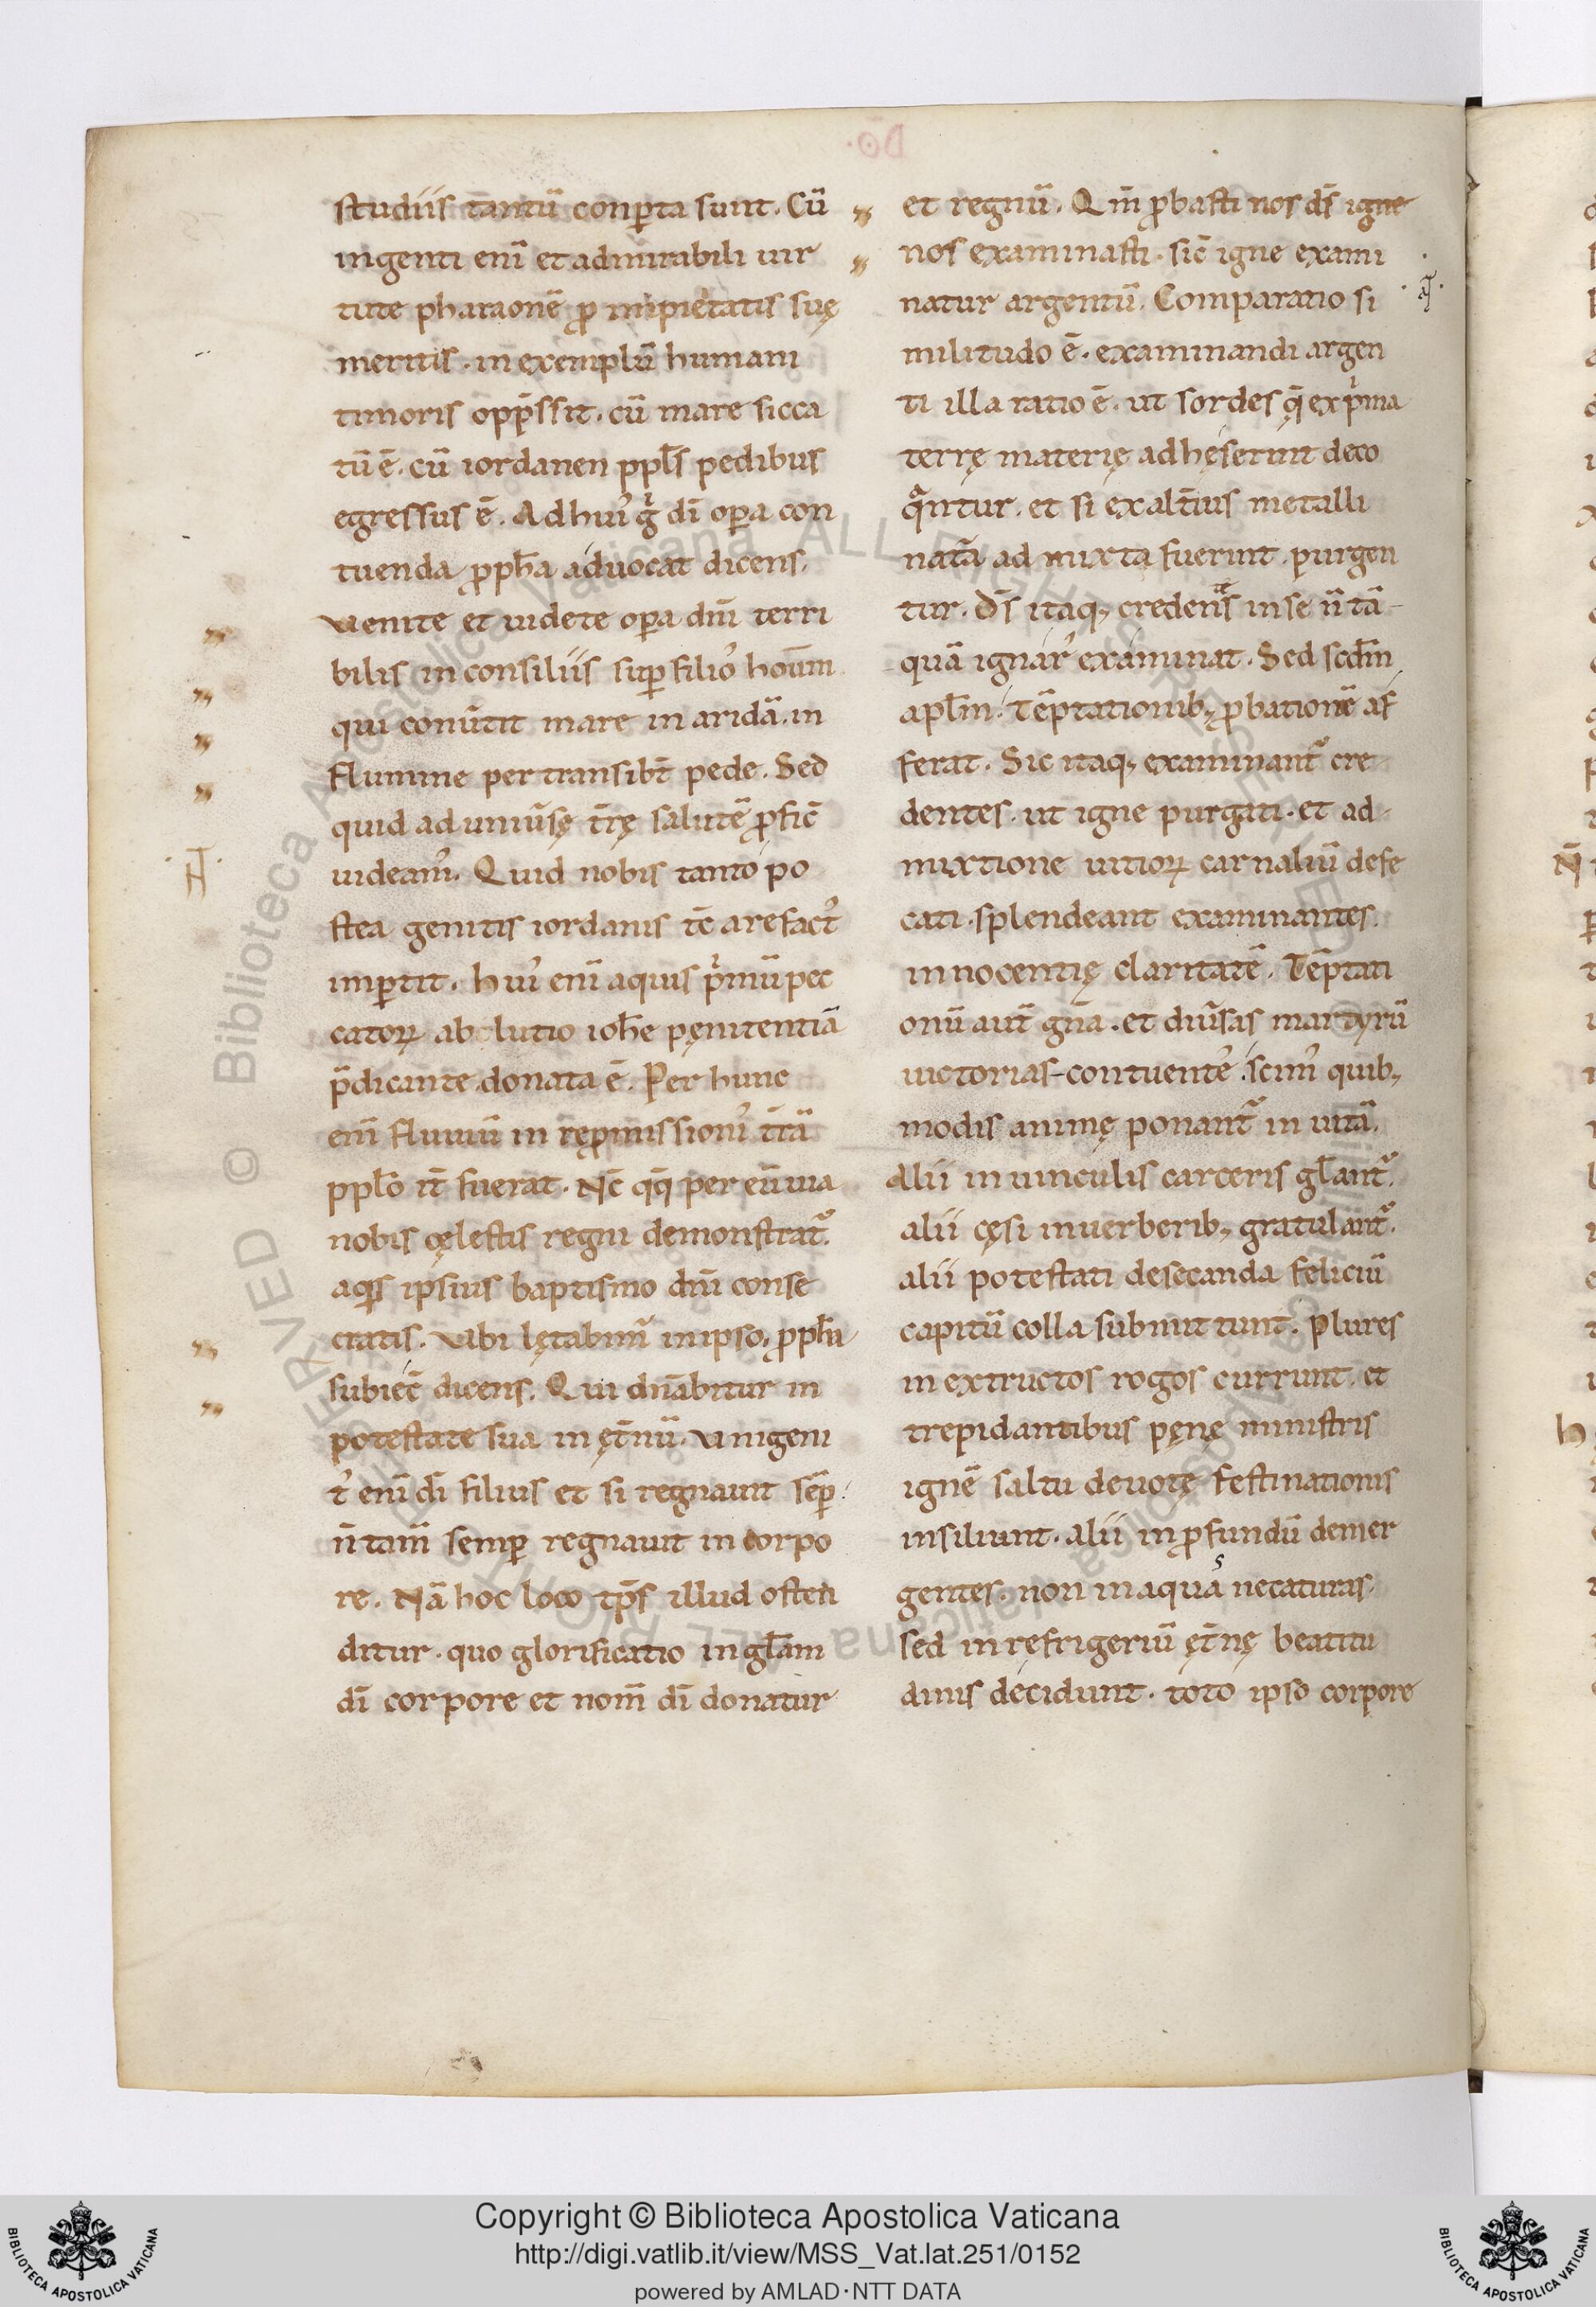 studiis tantū conꝑta sunt. Cū
ingenti eni̅ et admirabili uir
tute pharaonē ꝓ impietatis suę
meritis. in exemplū humani
timoris opp̄ssit. cū mare sicca
tū ē. cū iordanen ppl̄s pedibus
egressus ē. Ad huiꝰ gͥ dī oꝑa con
tuenda ꝓph̄a aduocat dicens.
Venite et uidete oꝑa dn̄i terri
bilis in consiliis suꝑ filioꝰ hoūm
qui conūtit mare in aridā. in
flumine per transibt̄ pede. Sed
quid ad uniūsę tr̄ę salutē ꝓfic̄
uideamꝰ. Quid nobis tanto po
stea genitis iordanis tc̄ arefactꝰ
imꝑtit. huiꝰ eni̅ aquis pͥmū pec
catoꝝ ab lutio ioh̄e pęnitentiā
p̄dicante donata ē. Per hunc
eni̅ fluuiū in reꝓmissionꝰ tr̄ā
ppl̄o it̄ fuerat. Nc̄ qq̄ per eū uia
nobis cęlestis regni demonstratᷣ.
aqͥs ipsius baptismo dn̄i conse
cratis. Vbi lętabimꝰ in ipso. ꝓph̄a
subiec̄ dicens. Qui dn̄abitur in
potestate sua in ęt̄nū. Vnigeni
tꝰ eni̅ dī filius et si regnauit sēꝑ.
n̄ tam̄ semꝑ regnauit in corpo
re. Nā hoc loco tp̄s illud osten
ditur. quo glorificatio in gl̄am
dī corpore et nom̄ dī donatur
et regnū. Qm̄ ꝓbasti nos ds̄ igne
nos examinasti. sic̄ igne exami
natur argentū. Comparatio si
militudo ē. examinandi argen
ti illa ratio ē. ut sordes q̨̄ ex pͥma
terrę materię adhęserunt deco
qᷓntur. et si ex alt̄ius metalli
natā ad mixta fuerint. purgen
tur. Ds̄ itaqꝫ credent̄s in se n̄ tā
quā ignarꝰ examinat. Sed scd̄m
apl̄m. tēptationibꝫ ꝓbationē af
ferat. Sic itaqꝫ examinantᷣ cre
dentes. ut igne purgati. et ad
mixtione uitioꝝ carnaliū defe
cati. splendeant examinantes.
innocentię claritatē. Tēptati
onū aut̄ gn̄a. et diūsas martyrū
uictorias contuenteꝰ. scimꝰ quibꝫ
modis animę ponantᷣ in uitā.
Alii in uinculis carceris gl̄antᷣ.
alii cęsi in uerberibꝫ gratulantᷣ.
alii potestati desecanda feliciū
capitū colla submittunt. Plures
in extructos rogos currunt. et
trepidantibus pęnę ministris
ignē saltu deuotę festinationis
insiliunt. alii in ꝓfundū demer
gentes. non in aquas necaturas.
sed in refrigeriū ęt̄nę beatitu
dinis decidunt. toto ipso corpore
Copyright © Biblioteca Apostolica Vaticana
http://digi.vatlib.it/view/MSS_Vat.lat.251/0152
powered by AMLAD·NTT DATA